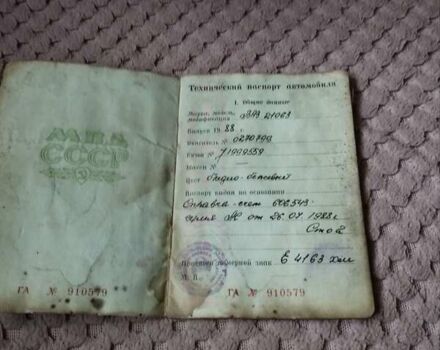 МВД
СССР
ГА № 910579
Технический паспорт автомобиля
1. Общие данные
Марка, модель,
модификация ВАЗ 21063
Выпуск 1988 г.
Двигатель № 0270799
Кузов №
Шасси № —
Цвет бледно-бежевый
Паспорт выдан на основании
Справка-счет
серия от 26.07.1988г
номерной знак Е 4163 ХМ
М. П.
ГА № 910579